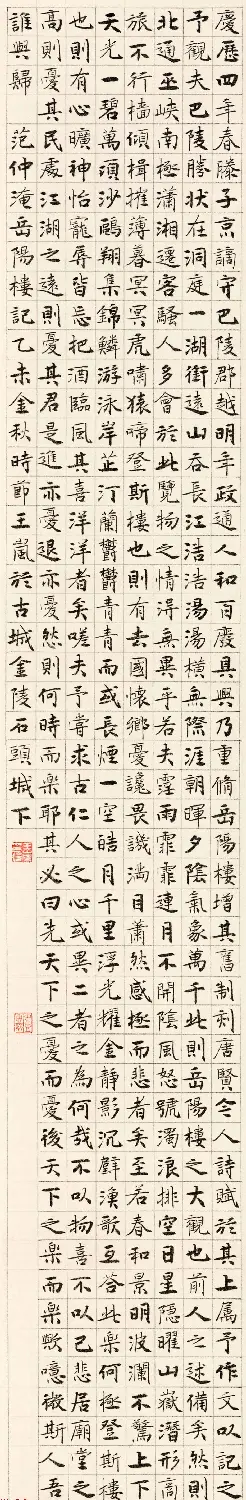 慶歷四年春滕子京謫守巴陵郡越明年政通人和百廢具興乃重脩岳陽樓增其舊制刻唐賢令人詩賦於其上属予作文以記之
予觀夫巴陵勝狀在洞庭一湖銜遠山吞長江浩浩湯湯橫無際涯朝暉夕陰氣象萬千此則岳陽樓之大觀也前人之述備矣然則
北通巫峽南極瀟湘遷客騷人多會於此覽物之情得無異乎若夫霪雨霏霏連月不開陰風怒號濁浪排空日星隱曜山嶽潛形商
旅不行檣傾楫摧薄暮冥冥虎嘯猿啼登斯樓也則有去國懷鄉憂讒畏譏滿目蕭然感極而悲者矣至若春和景明波瀾不驚上下
天光一碧萬頃沙鷗翔集錦鱗游泳岸芷汀蘭鬱鬱青青而或長煙一空皓月千里浮光耀金靜影沉璧漁歌互答此樂何極登斯樓
也則有心曠神怡寵辱皆忘把酒臨風其喜洋洋者矣嗟夫予嘗求古仁人之心或異二者之為何哉不以物喜不以己悲居廟堂之
高則憂其民處江湖之遠則憂其君是進亦憂退亦憂然則何時而樂耶其必曰先天下之憂而憂後天下之樂而樂歟噫微斯人吾
誰與歸 范仲淹岳陽樓記乙未金秋時節王嵐於古城金陵石頭城下